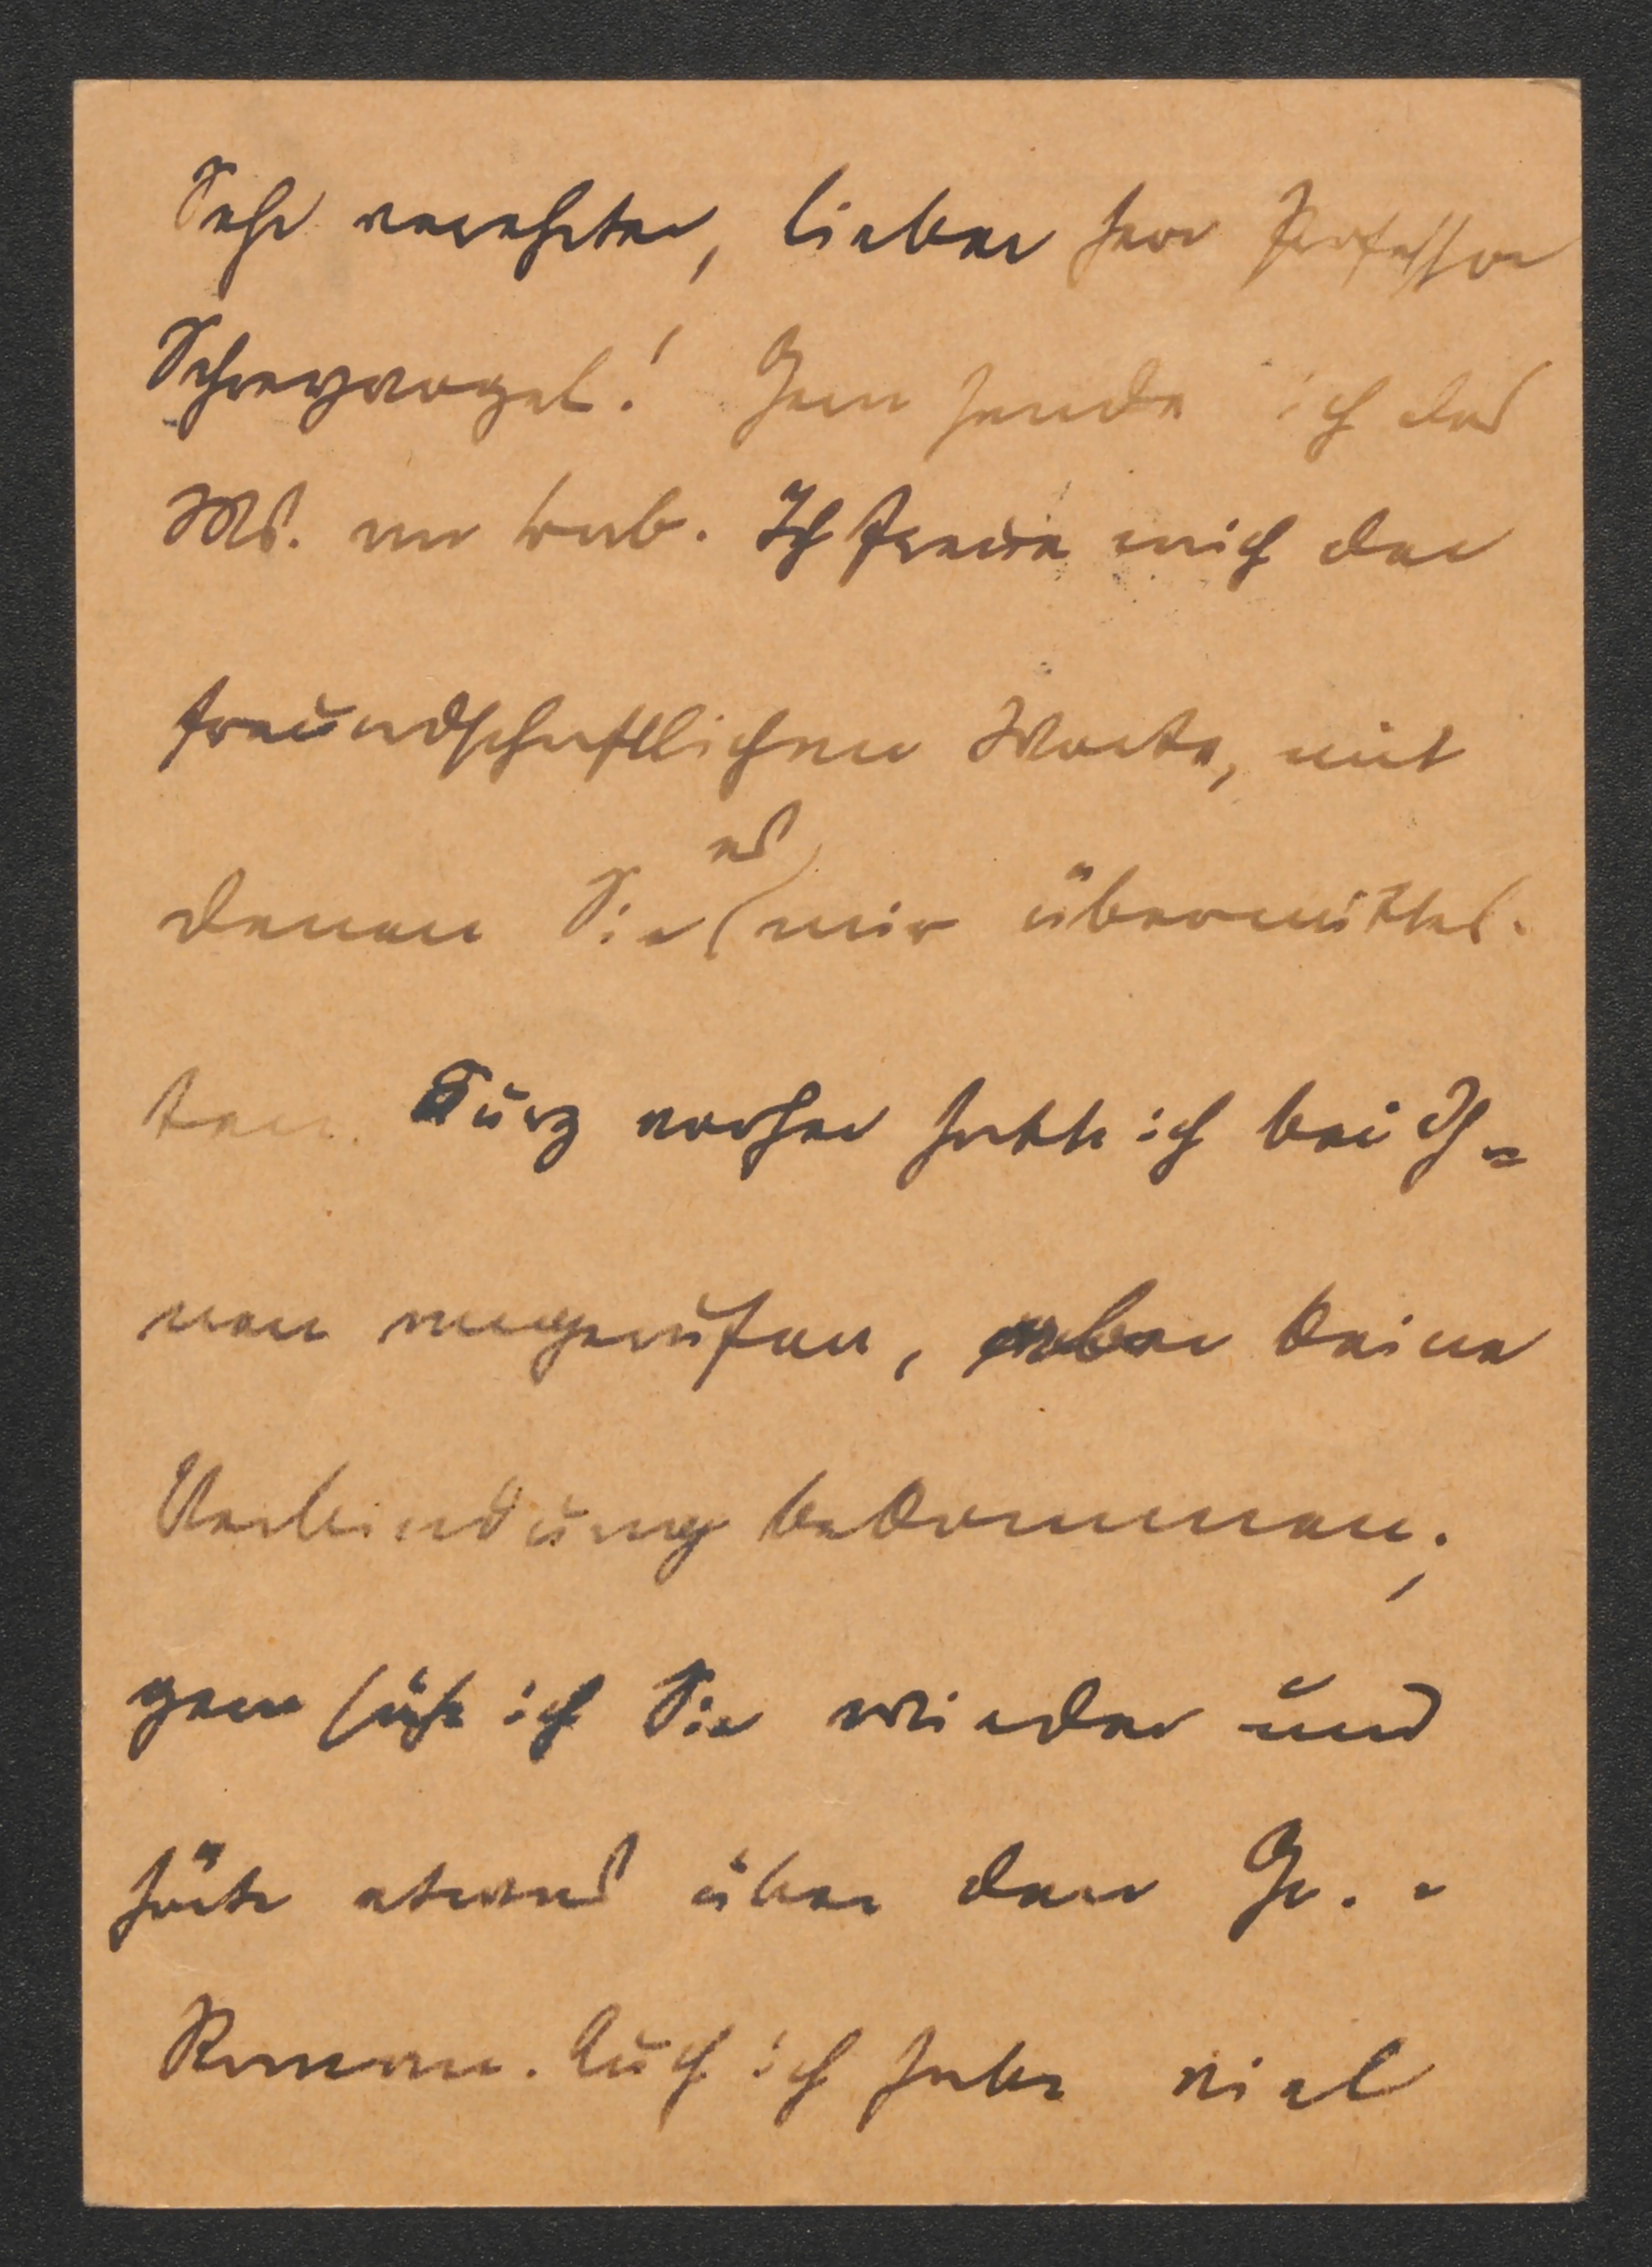 Sehr verehrter, lieber Herr Professor
Schreyvogel! Gern sende ich das
Ms. an Ich freue mich der
freundschaftlichen Worte, mit
denen Sie es mir übermittel-
ten. Kurz vorher hatte ich bei Ih=
nen angerufen, aber keine
Verbindung bekommen;
gern säh ich Sie wieder und
hörte etwas über den Gr.-
Roman. Auch ich habe viel